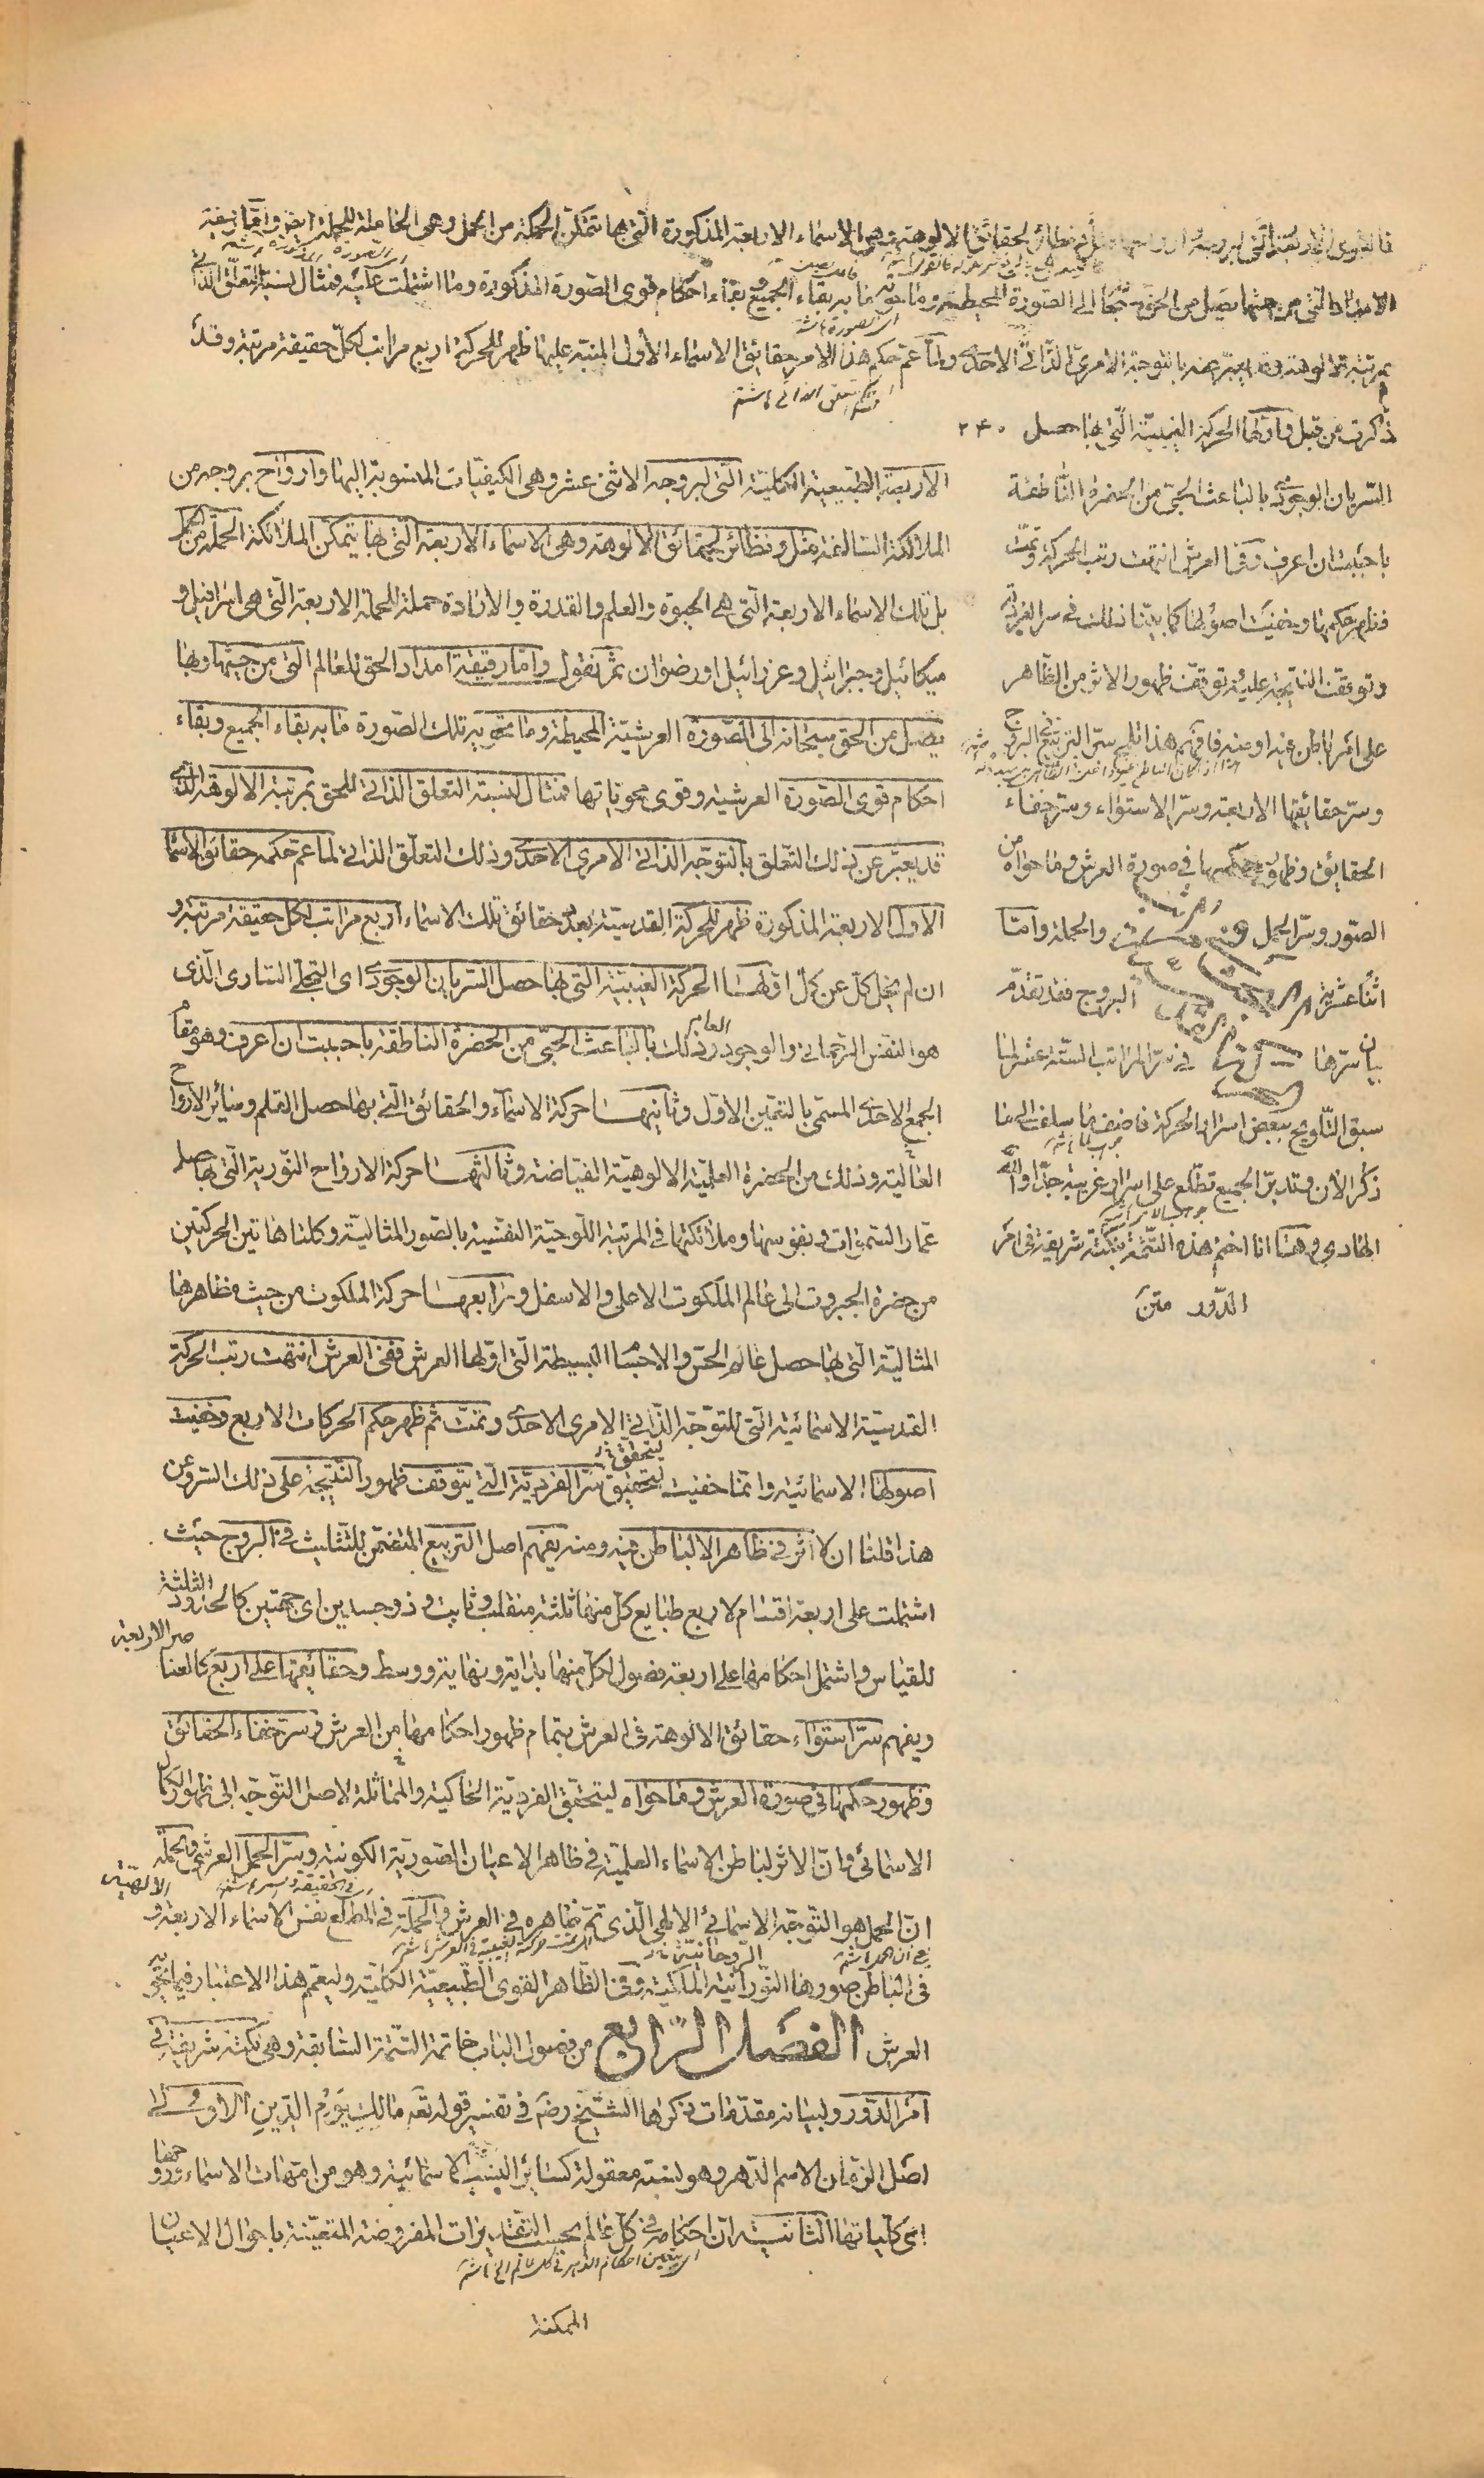 فالقوى الاربعة التى لبروجه نظائر الحقائق الالوهته وهى الاسماء الاربعة المذكورة التى بها تتمكن الحملة من الحمل وهى الحاملة للحملة ايضا واما رقيقة
الامداد التى من حيثها يصل من الحق الى الصورة المحيطة وما حوته ما به بقاء الجميع وبقاء احكام قوى الصورة المذكورة وما اشتملت عليه فمثال لنسبة التعلق الذاتى
بمرتبة الالوهة وقد يعبر عنه بالتوجه الامرى الذاتى الاحدى ولما عم حكم هذا الامر حقائق الاسماء الأول المنبه عليها ظهر للحركة اربع مراتب لكل حقيقة مرتبة وقد
ذكرت من قبل فاولها الحركة الغيبية التى بها حصل ۲۴۰
السريان الوجودى بالباعث الحبى من الحضرة الناطقة
باحببت ان اعرف وفى العرش انتهت رتب الحركة وتمت
فظهر حكمها وخفيت اصولها كما بينا ذلك فى سر الفردية
وتوقف النتيجة عليه توقف ظهور الاثر من الظاهر
على امر باطن عنه او منه فافهم هذا تلمح سر التربيع البروج
وسر حقائقها الاربعة وسر الاستواء وسر خفاء
الحقائق وظهور حكمها فى صورة العرش وما حواه من
الصور وسر الحمل والحملة واما
اثنا عشرية البروج فقد تقدم
بيان سرها فى سر المراتب الستة عشر لما
سبق التلويح ببعض اسرار الحركة فاضف ما سلف الى ما
ذكر الان وتدبر الجميع تطلع على اسرار غريبة جدا والله
الهادى وهنا انا اختم هذه التتمة بنكتة شريفة فى امر
الدور متن
الاربعة الطبيعية الكلية التى لبروجه الاثنى عشر وهى الكيفيات المنسوبة اليها وارواح بروجه من
الملائكة السالفة مثل ونظائر لحقائق الالوهة وهى الاسماء الاربعة التى بها يتمكن الملائكة الحملة من الحمل
بل تلك الاسماء الاربعة التى هى الحيوة والعلم والقدرة والارادة حملة للحملة الاربعة التى هى اسرافيل و
ميكائيل وجبرائيل وعزرائيل او رضوان ثم نقول واما رقيقة امداد الحق للعالم التى من حيثها وبها
يصل من الحق سبحانه الى الصورة العرشية المحيطة وما تحويه تلك الصورة ما به بقاء الجميع وبقاء
احكام قوى الصورة العرشية وقوى محوياتها فمثال لنسبة التعلق الذاتى للحق بمرتبة الالوهة الذى
قد يعبر عن ذلك التعلق بالتوجه الذاتى الامرى الاحدى وذلك التعلق الذاتى لما عم حكمه حقائق الاسماء
الاول الاربعة المذكورة ظهر للحركة القدسية بعدد حقائق تلك الاسماء اربع مراتب لكل حقيقة مرتبة و
ان لم يخل كل عن كل اولها الحركة الغيبية التى بها حصل السريان الوجودى اى التجلى السارى الذى
هو النفس الرحمانى والوجود العام وذلك بالباعث الحبى من الحضرة الناطقة باحببت ان اعرف وهو مقام
الجمع الاحدى المسمى بالتعين الاول وثانيها حركة الاسماء والحقائق التى بها حصل القلم وسائر الارواح
العالية وذلك من الحضرة العلمية الالوهية الفياضة وثالثها حركة الارواح النورية التى بها حصل
عمار السموات ونفوسها وملائكتها فى المرتبة اللوحية النفسية بالصور المثالية وكلتا هاتين الحركتين
من حضرة الجبروت الى عالم الملكوت الاعلى والاسفل ورابعها حركة الملكوت من حيث مظاهرها
المثالية التى بها حصل عالم الحس والاجسام البسيطة التى اولها العرش ففى العرش انتهت رتب الحركة
القدسية الاسمائية التى للتوجه الذاتى الامرى الاحدى وتمت ثم ظهر حكم الحركات الاربع وخفيت
اصولها الاسمائية وانما خفيت لتحقيق سر الفردية التى يتوقف ظهور النتيجة على ذلك السر وعن
هذا قلنا ان لا اثر فى ظاهر الا لباطن عنه ومنه يفهم اصل التربيع المتضمن للتثليث فى البروج حيث
اشتملت على اربعة اقسام لاربع طبايع كل منها ثلثة منقلب وثابت وذو جسدين اى جهتين كالحدود الثلثة
للقياس واشتمل احكامها على اربعة فصول لكل منها بداية ونهاية ووسط وحقائقها على اربع كالعناصر الاربعة
ويفهم سر استواء حقائق الالوهة فى العرش بتمام ظهور احكامها من العرش وسر خفاء الحقائق
وظهور حكمها فى صورة العرش وما حواه ليتحقق الفردية الحاكية والمماثلة لاصل التوجه الى ظهور الكمال
الاسمائى وان الاثر لباطن الاسماء العلمية فى ظاهر الاعيان الصورية الكونية وسر الحمل العرشى والحملة
ان الحمل هو التوجه الاسمائى الالهى الذى تم ظاهره فى العرش والحملة فى المطلع نفس الاسماء الاربعة الالهية و
فى الباطن صورها النورانية الملكية الروحانية وفى الظاهر القوى الطبيعية الكلية وليعم هذا الاعتبار فيما تحويه
العرش الفصل الرابع من فصول الباب خاتمة التتمة السابقة وهى نكتة شريفة فى
امر الدور ولبيانه مقدمات ذكرها الشيخ رضه فى تفسير قوله تعه مالك يوم الدين الاولى
اصل الزمان الاسم الدهر وهو نسبة معقولة كسائر النسب الاسمائية وهو من امهات الاسماء
اى كلياتها الثانية ان احكامه فى كل عالم بحسب التقديرات المفروضة المتعينة باحوال الاعيان
الممكنة